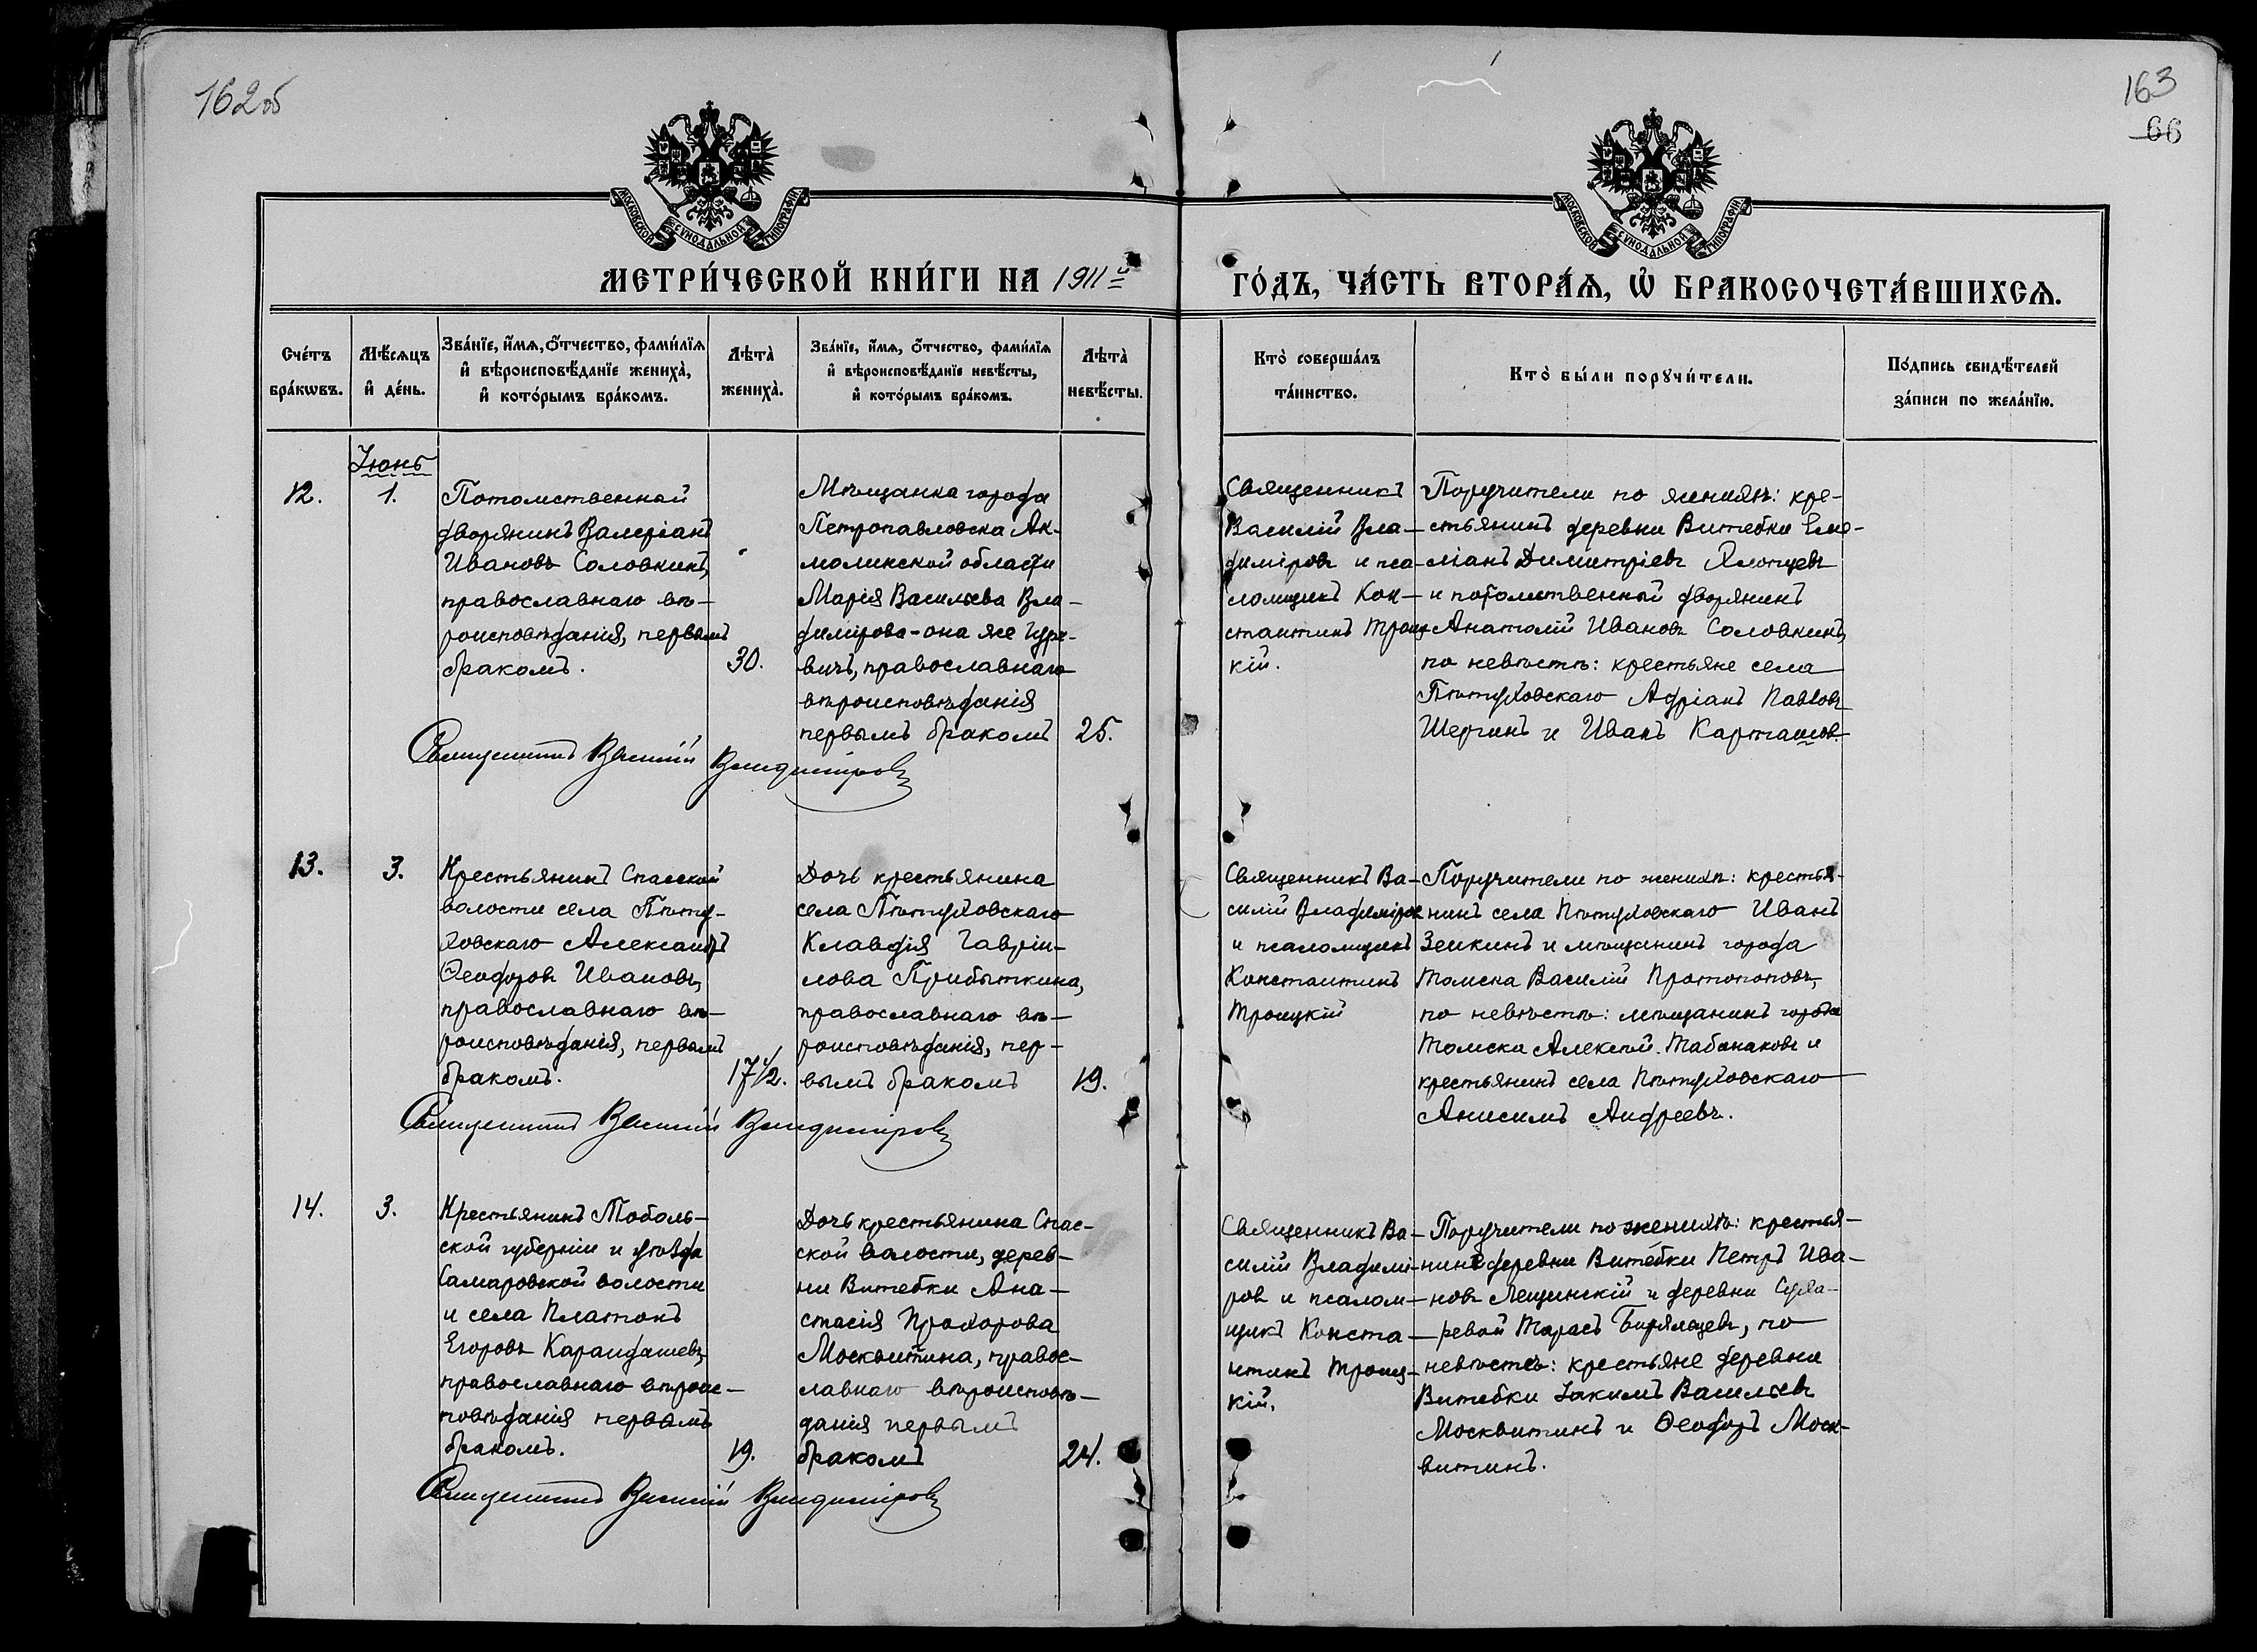 162об
163
66
МОСКОВСКОЙ СУНОДАЛЬНОЙ ТИПОГРАФІИ
МОСКОВСКОЙ СУНОДАЛЬНОЙ ТИПОГРАФІИ
МЕТРИ́ЧЕСКОЙ КНИ́ГИ НА 1911й
ГО́ДЪ, ЧА́СТЬ ВТОРА́Ѧ, Ѽ БРАКОСОЧЕТА́ВШИХСѦ.
Сче́тъ
бра́кѡвъ.
Мѣ́сѧцъ
и҆ де́нь.
Зва́нїе, и҆́мѧ, ѻ҆́тчество, фами́лїѧ
и҆ вѣроисповѣ́данїе жениха̀,
и҆ кото́рымъ бра́комъ.
Лѣта̀
жениха̀.
Зва́нїе, и҆́мѧ, ѻ҆́тчество, фами́лїѧ
и҆ вѣроисповѣ́данїе невѣ́сты,
и҆ кото́рымъ бра́комъ.
Лѣта̀
невѣ́сты.
Кто̀ соверша́лъ
та́инство.
Кто̀ бы́ли порꙋчи́тели.
По́дпись свидѣ́телей
за́писи по жела́нїю.
Іюнь
12.
1.
Потомственный
дворянинъ Валеріанъ
Ивановъ Соловкинъ,
православнаго вѣ-
роисповѣданія, первымъ
бракомъ.
30.
Мѣщанка города
Петропавловска Ак-
молинской области
Марія Васильева Вла-
димірова-она же Гуре-
вичъ, православнаго
вѣроисповѣданія
первымъ бракомъ
25.
Священникъ Василій Владиміровъ
Священникъ
Василій Вла-
диміровъ и пса-
ломщикъ Кон-
стантинъ Троиц-
кій.
Поручители по женихѣ: кре-
стьянинъ деревни Витебки Еме-
ліанъ Димитріевъ Хлопцевъ
и потомственный дворянинъ
Анатолій Ивановъ Соловкинъ,
по невѣстѣ: крестьяне села
Пѣтуховскаго Адріанъ Павловъ
Шергинъ и Иванъ Карташовъ.
13.
3.
Крестьянинъ Спасской
волости села Пѣту-
ховскаго Александръ
Ѳеодоровъ Ивановъ,
православнаго вѣ-
роисповѣданія, первымъ
бракомъ.
17 1/2.
Дочь крестьянина
села Пѣтуховскаго
Клавдія Гавріи-
лова Прибыткина,
православнаго вѣ-
роисповѣданія, пер-
вымъ бракомъ
19.
Священникъ Василій Владиміровъ
Священникъ Ва-
силій Владиміровъ
и псаломщикъ
Константинъ
Троицкій
Поручители по женихѣ: крестья-
нинъ села Пѣтуховскаго Иванъ
Зенкинъ и мѣщанинъ города
Томска Василій Протопоповъ,
по невѣстѣ: мѣщанинъ города
Томска Алексѣй Табанаковъ и
крестьянинъ села Пѣтуховскаго
Анисимъ Андреевъ.
14.
3.
Крестьянинъ Тоболь-
ской губерніи и уѣзда
Самаровской волости
и села Платонъ
Егоровъ Карандашевъ,
православнаго вѣроис-
повѣданія первымъ
бракомъ.
19.
Дочь крестьянина Спас-
ской волости, дерев-
ни Витебки Ана-
стасія Прохорова
Москвитина, правос-
лавнаго вѣроисповѣ-
данія первымъ
бракомъ
24.
Священникъ Василій Владиміровъ
Священникъ Ва-
силій Владимі-
ровъ и псалом-
щикъ Конста-
нтинъ Троиц-
кій.
Поручители по женихѣ: крестья-
нинъ деревни Витебки Петръ Ива-
новъ Лещинскій и деревни
ревой Тарасъ Бирялцевъ, по
невѣстѣ: крестьяне деревни
Витебки Іакимъ Васильевъ
Москвитинъ и Ѳеодоръ Моск-
витинъ.